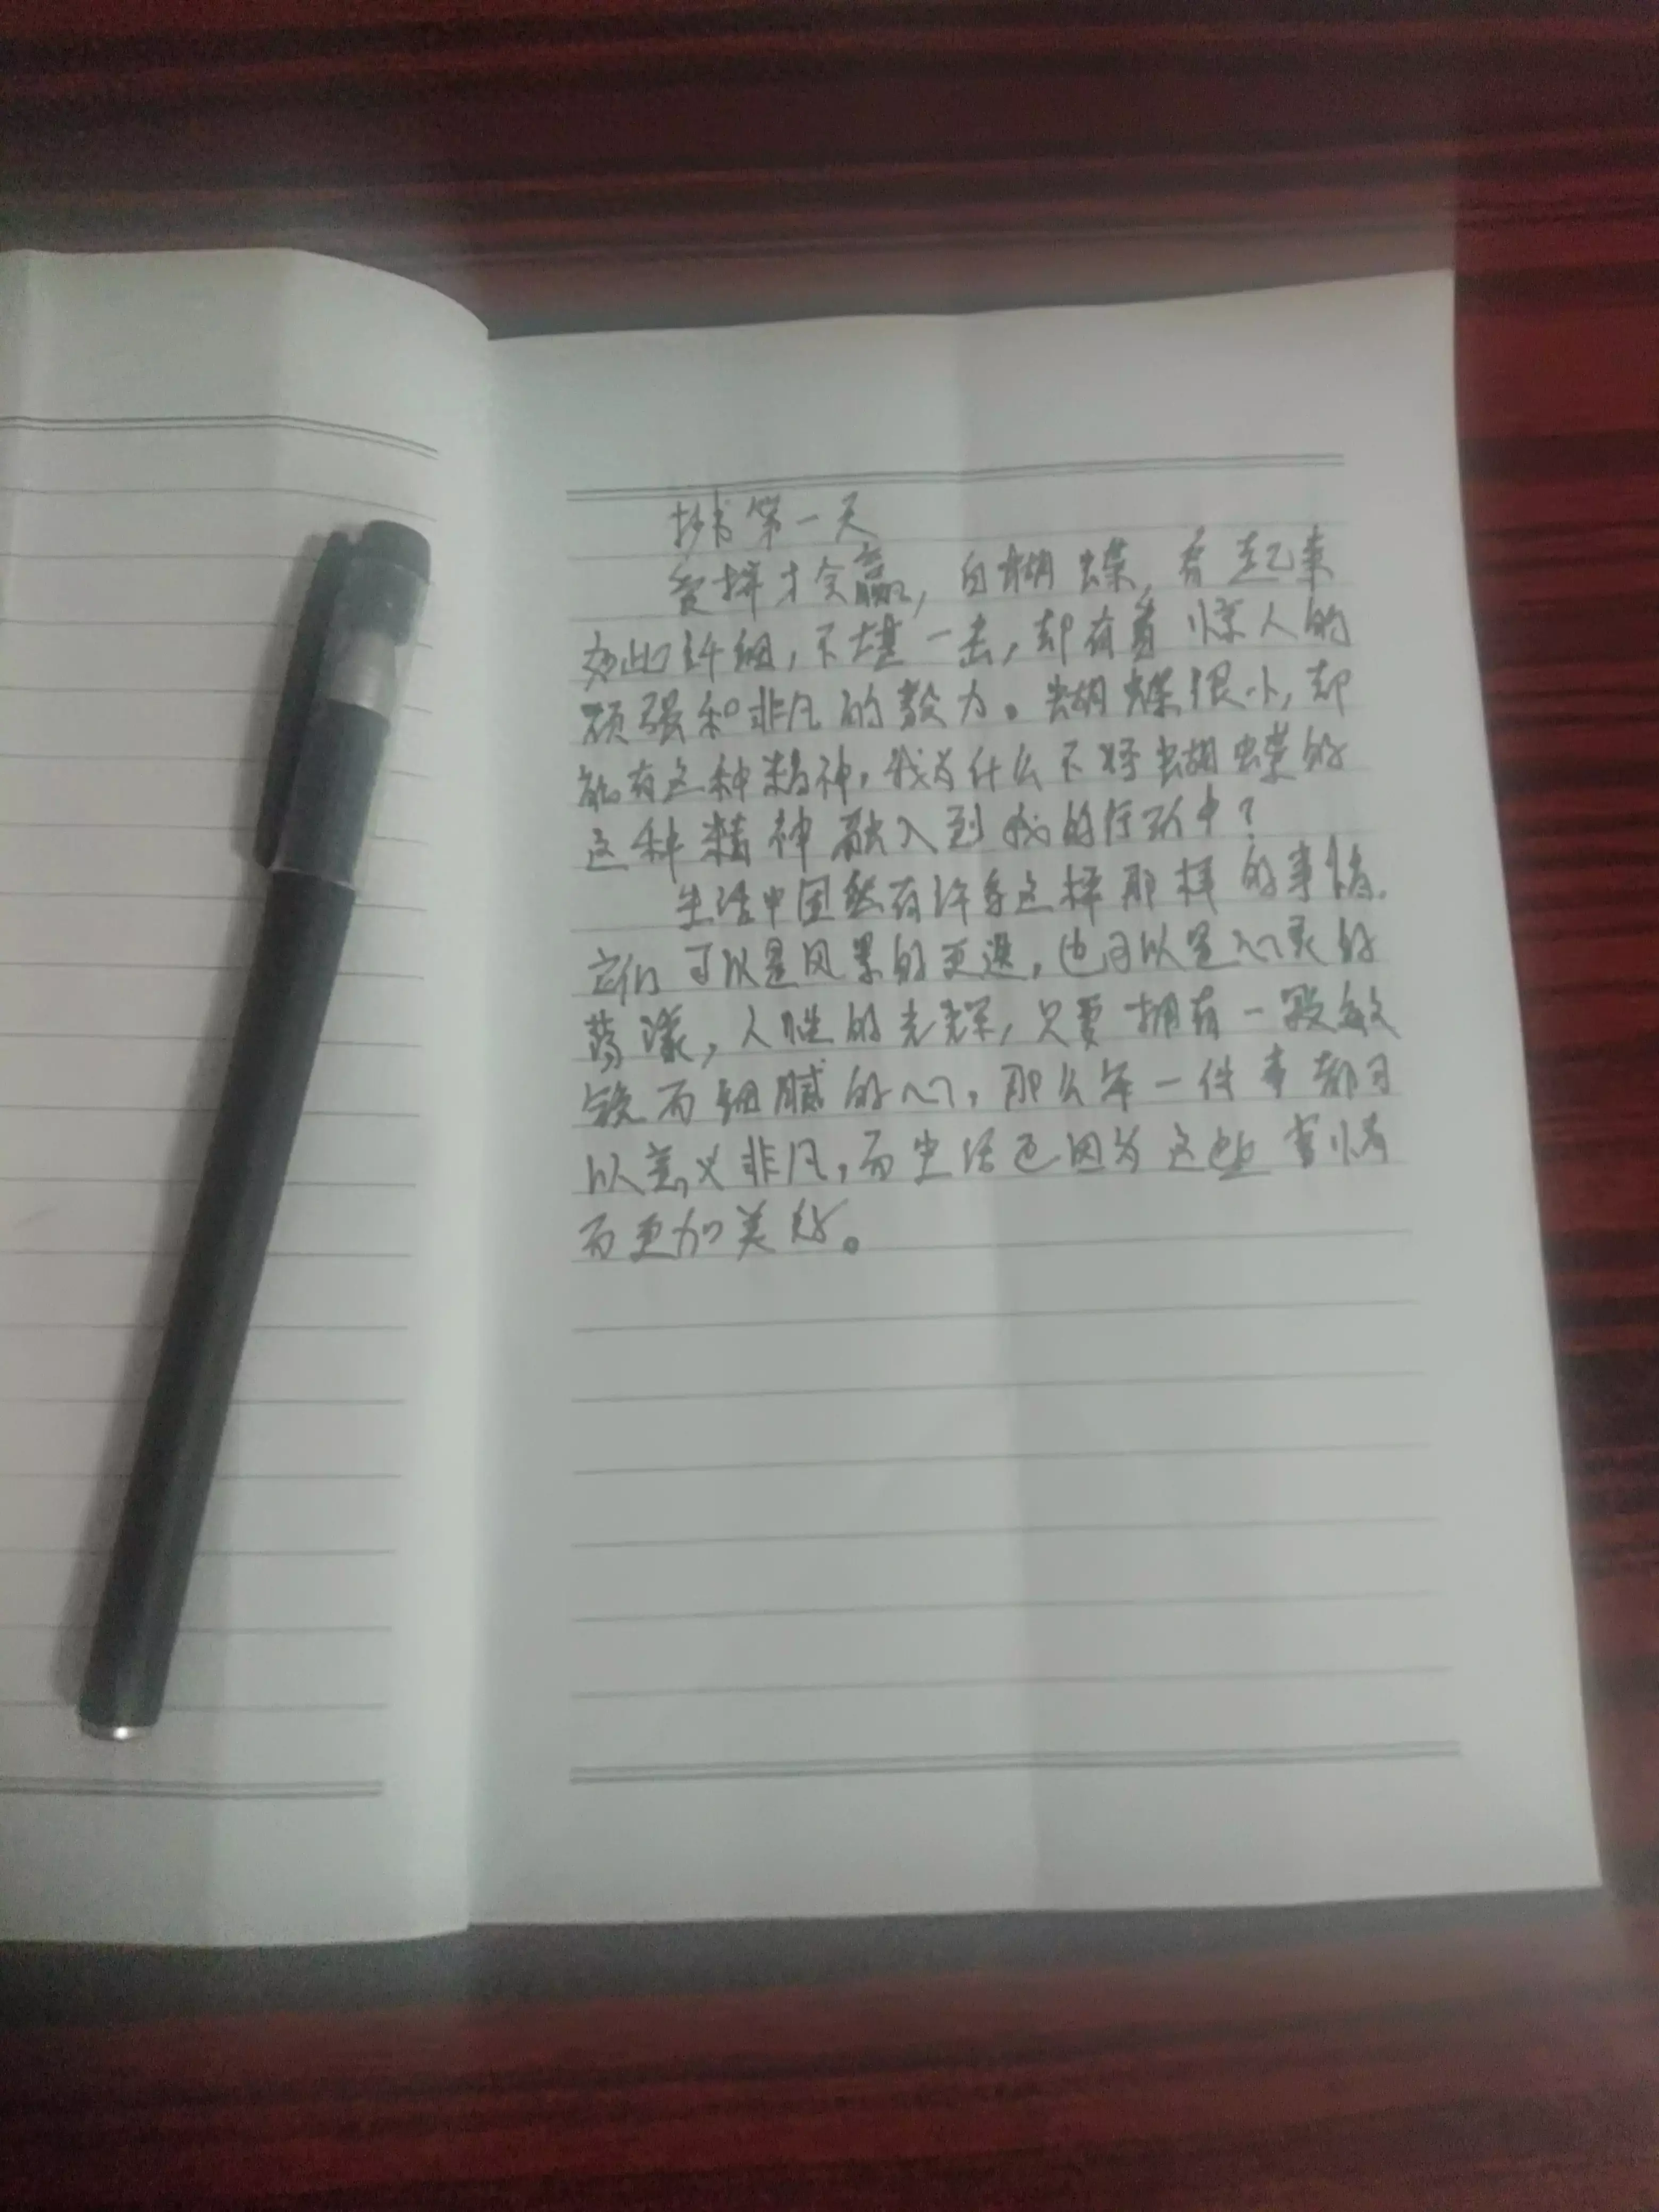 抄书第一天
爱拼才会赢，白蝴蝶，看起来
如此纤细，不堪一击，却有着惊人的
顽强和非凡的毅力。蝴蝶很小，却
能有这种精神，我为什么不将蝴蝶的
这种精神融入到我的行动中？
生活中固然有许多这样那样的事情，
它们可以是风景的更迭，也可以是心灵的
荡漾，人性的光辉，只要拥有一段敏
锐而细腻的心，那么每一件事都可
以意义非凡，而生活也因为这些事情
而更加美好。